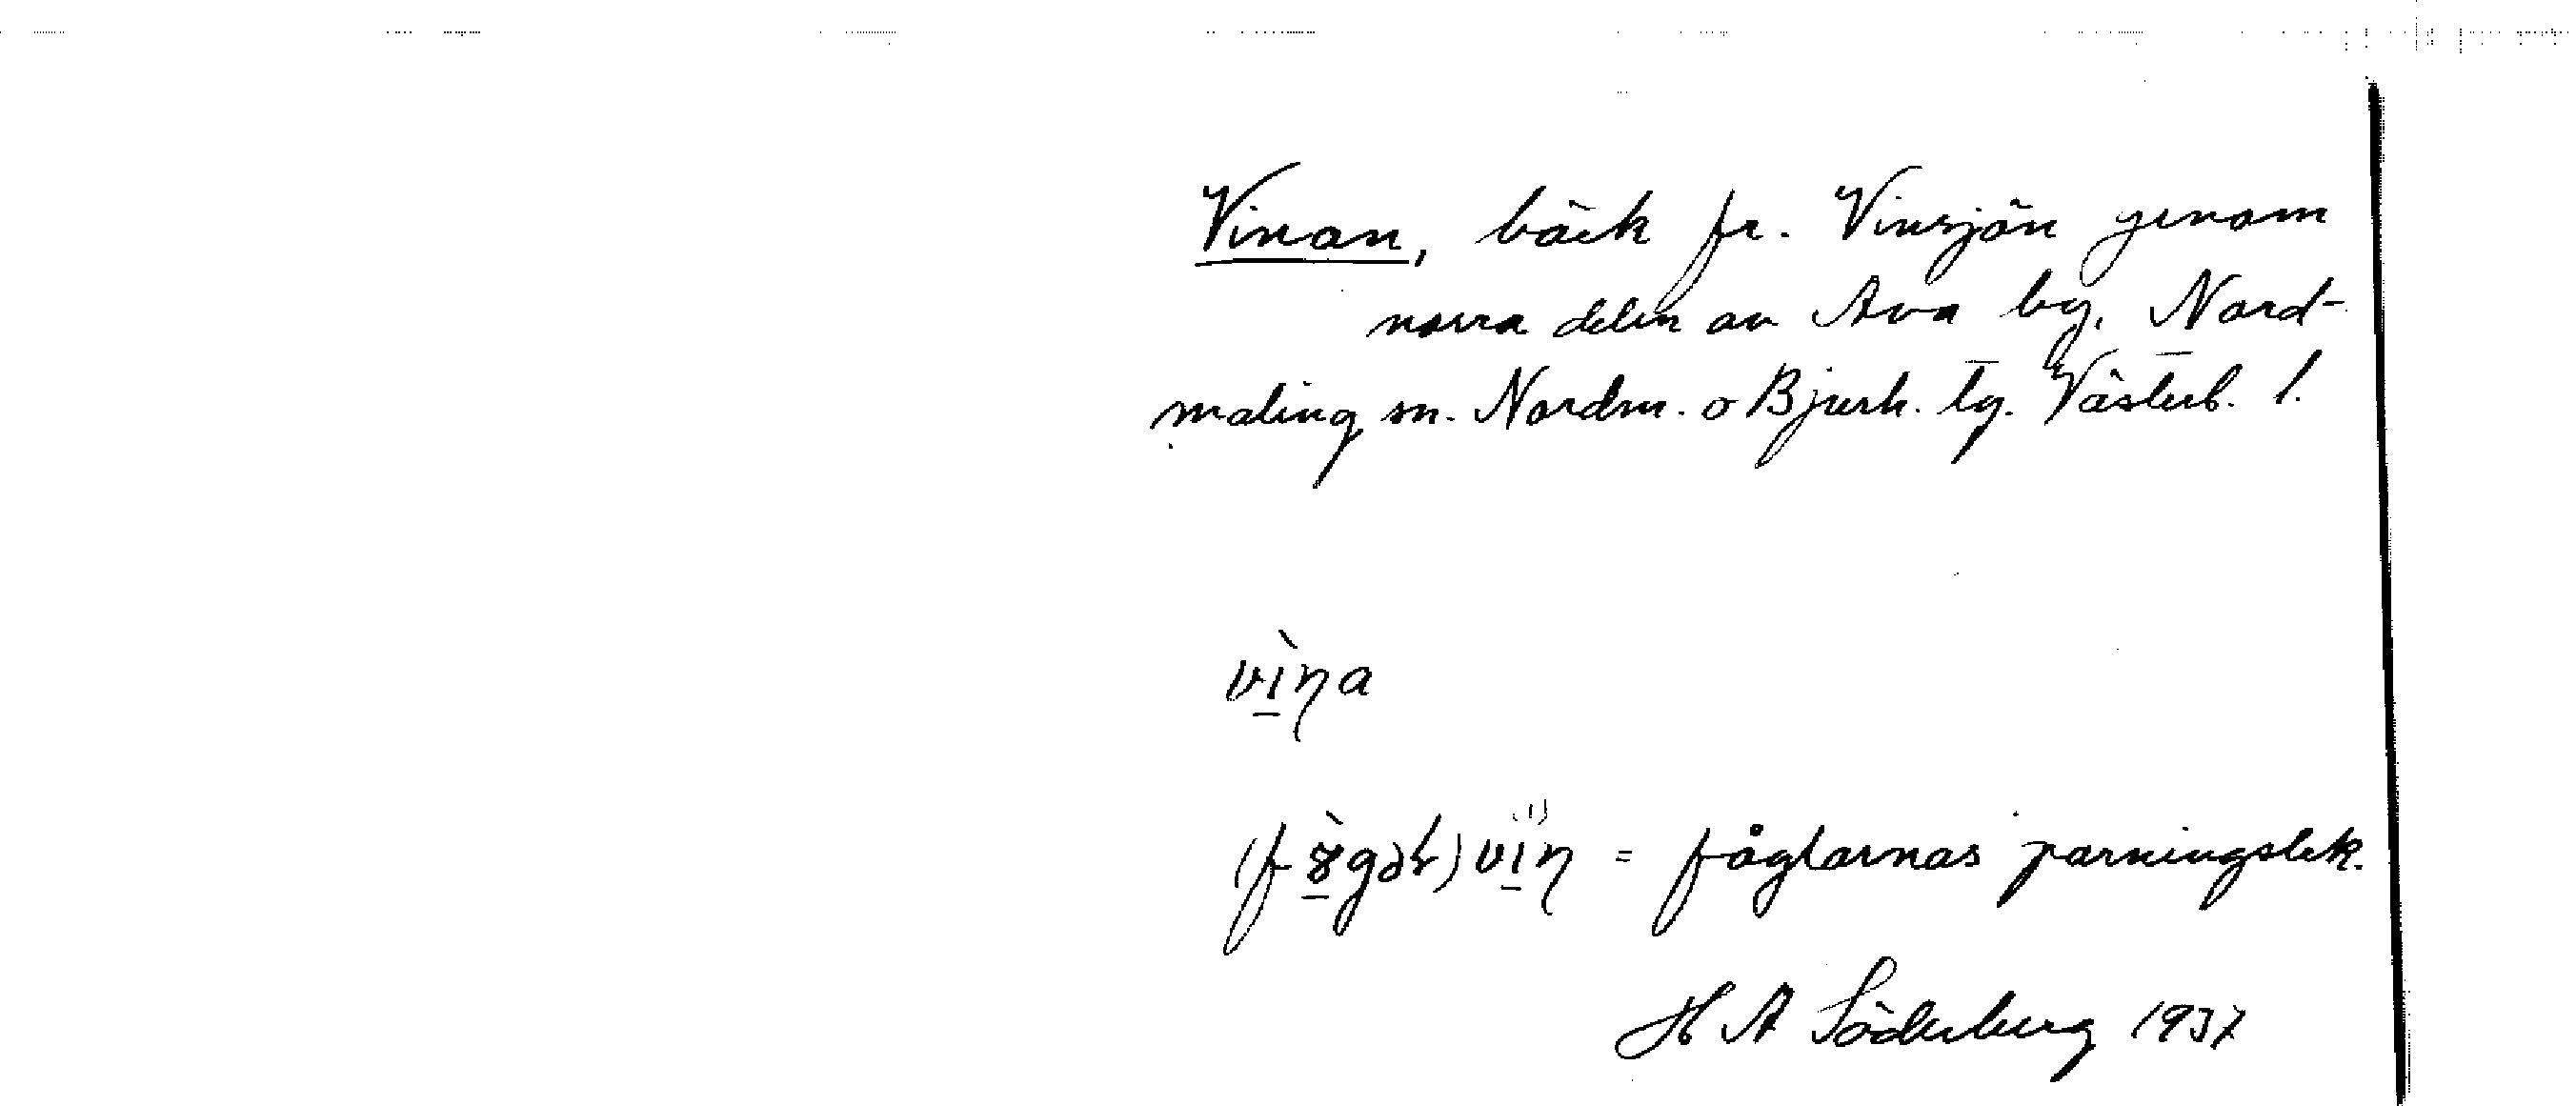 Vinan, bäck fr. Vinsjön genom
norra delen av Ava by, Nord-
maling sn. Nordm. o Bjurh. tg. Västerb. l.
vìŋa
vin = fåglarnas parningslek.
H A Söderberg 1937